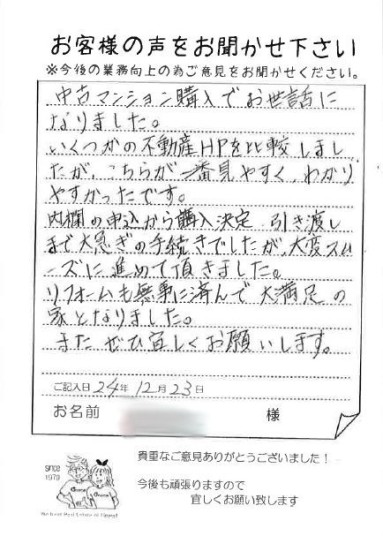 お客様の声をお聞かせ下さい
※今後の業務向上の為ご意見をお聞かせください。
中古マンション購入でお世話に
なりました。
いくつかの不動産HPを比較しまし
たが、こちらが一番見やすく、わかり
やすかったです。
内欄の申込から購入決定、引き渡し
まで大急ぎの手続きでしたが、大変スム
ーズに進めて頂きました。
リフォームも無事に済んで大満足の
家となりました。
またぜひ宜しくお願いします。
ご記入日 24年 12月 23日
お名前 様
貴重なご意見ありがとうございました!
今後も頑張りますので
宜しくお願い致します
since
1979